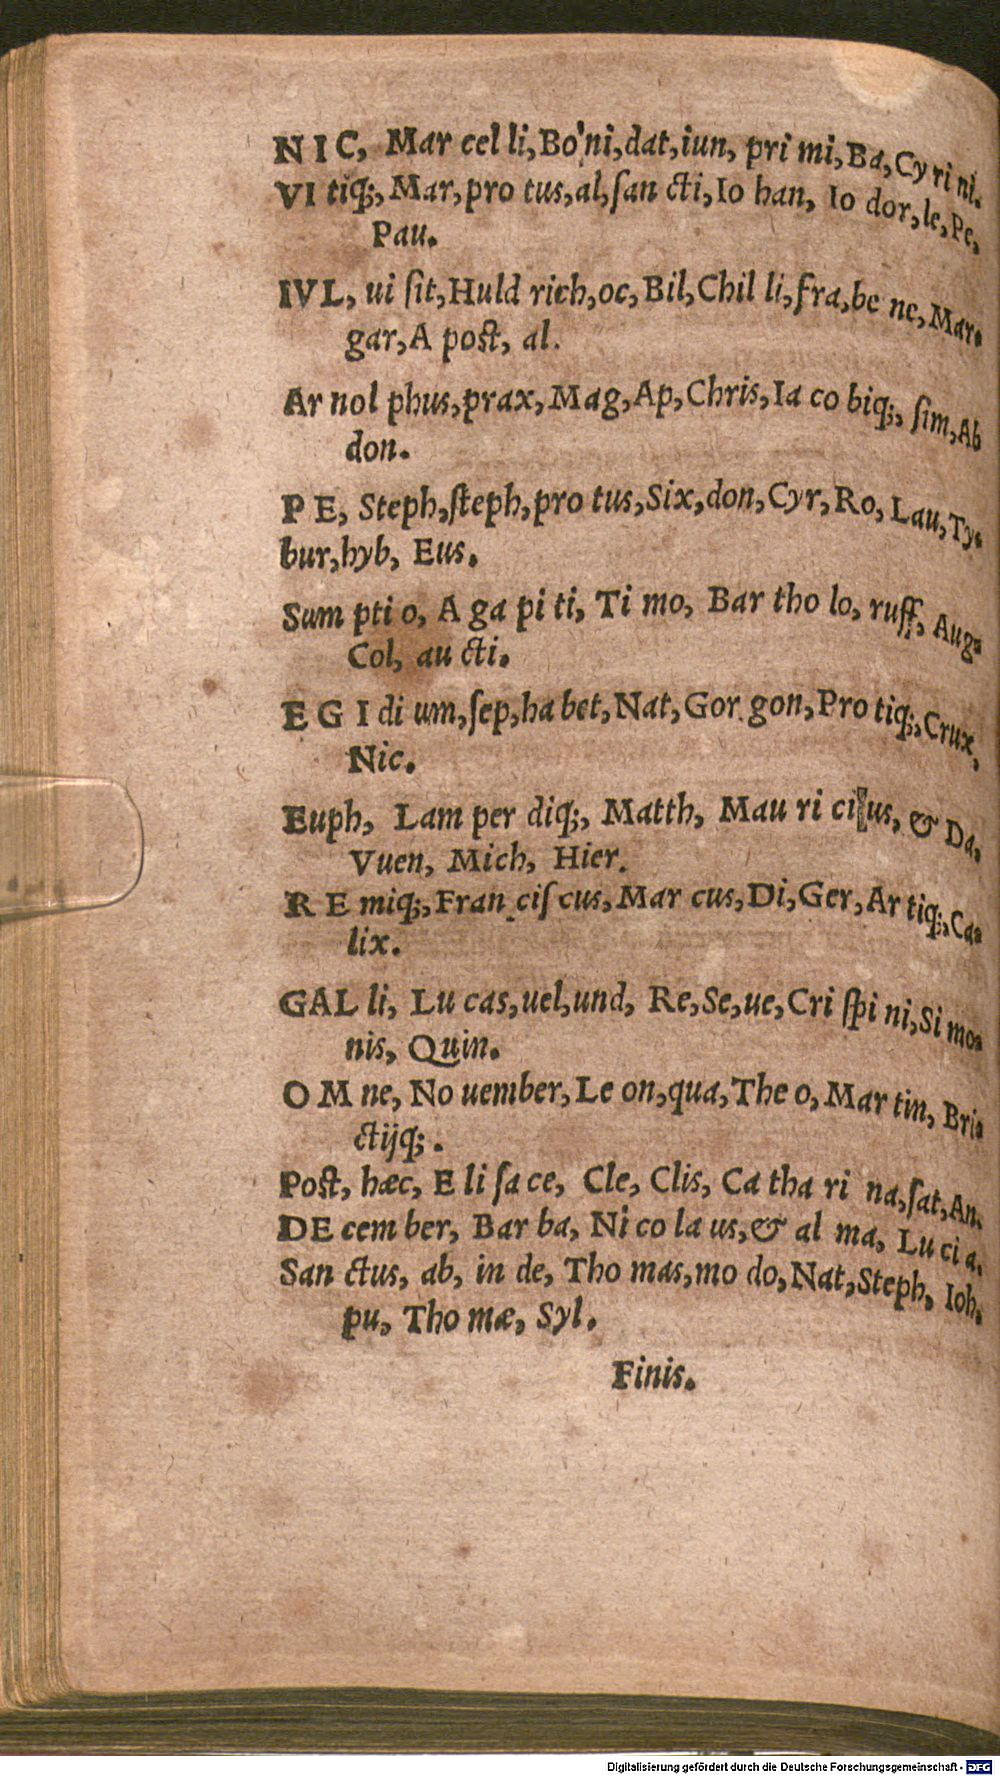 NIC, Mar cel li, Bo ni, dat, iun, pri mi, Ba, Cy ri ni.
VI tiq;, Mar, pro tus, al, ſan cti, Io han, Io dor, le, Pe,
Pau.
IVL, ui ſit, Huld rich, oc, Bil, Chil li, fra, be ne, Mar-
gar, A poſt, al.
Ar nol phus, prax, Mag, Ap, Chris, Ia co biq;, ſim, Ab
don.
P E, Steph, ſteph, pro tus, Six, don, Cyr, Ro, Lau, Ty-
bur, hyb, Eus.
Sum pti o, A ga pi ti, Ti mo, Bar tho lo, ruff, Aug-
Col, au cti.
E G I di um, ſep, ha bet, Nat, Gor gon, Pro tiq;, Crux,
Nic.
Euph, Lam per diq;, Matth, Mau ri ci us, & Da,
Vuen, Mich, Hier.
R E miq;, Fran ciſ cus, Mar cus, Di, Ger, Ar tiq;, Ca-
lix.
GAL li, Lu cas, uel, und, Re, Se, ue, Cri ſpi ni, Si mo-
nis, Quin.
O M ne, No uember, Le on, qua, The o, Mar tin, Bri-
ctijq;.
Poſt, hæc, E li ſa ce, Cle, Clis, Ca tha ri na, ſat, An.
DE cem ber, Bar ba, Ni co la us, & al ma, Lu ci a.
San ctus, ab, in de, Tho mas, mo do, Nat, Steph, Ioh,
pu, Tho mæ, Syl.
Finis.
Digitalisierung gefördert durch die Deutsche Forschungsgemeinschaft - DFG